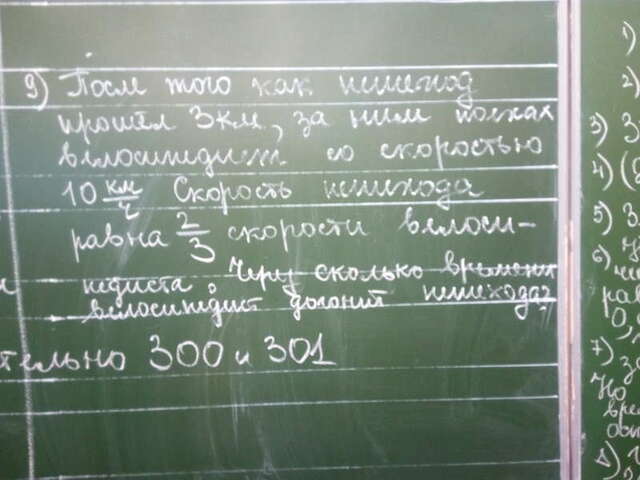 9) После того как пешеход
прошёл 3 км, за ним поехал
велосипедист со скоростью
10 км/ч Скорость пешехода
равна 2/3 скорости велоси-
педиста. Через сколько времени
велосипедист догонит пешехода?
тельно 300 и 301
1)
2)
3) 3
4) (
5) 3
6)
че
рав
0,
7) за
Но
вре